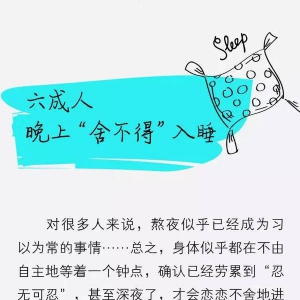 Sleep
六成人
晚上“舍不得”入睡
对很多人来说，熬夜似乎已经成为习
以为常的事情……总之，身体似乎都在不由
自主地等着一个钟点，确认已经劳累到“忍
无可忍”，甚至深夜了，才会恋恋不舍地进